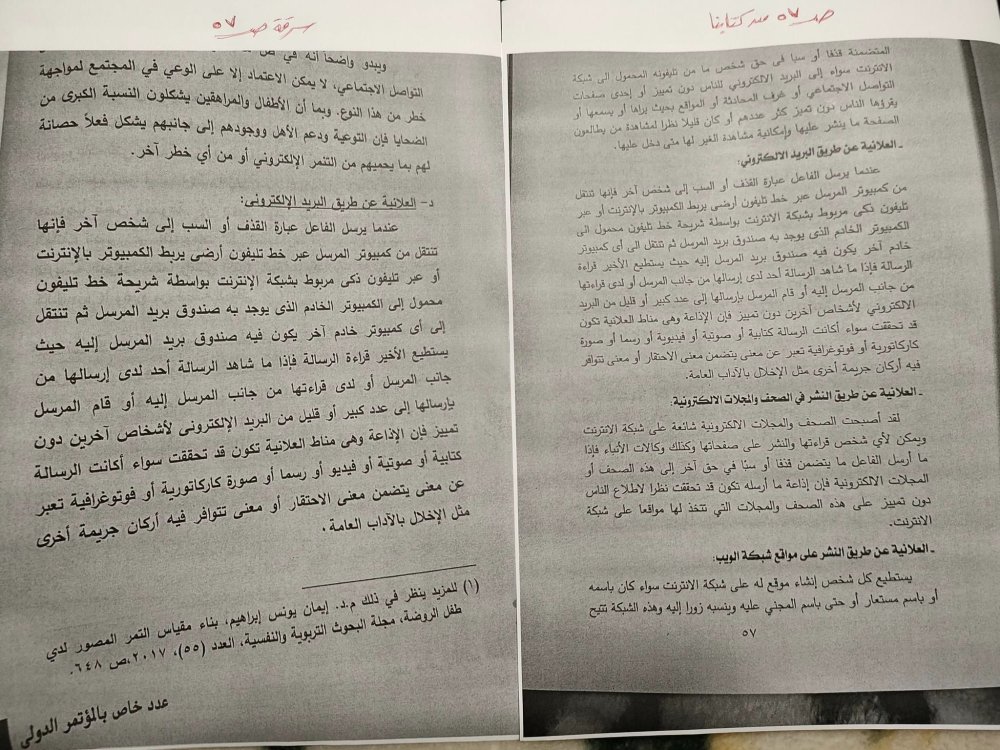 صـ ٥٧ من كتابنا
المتضمنة قذفا أو سبا فى حق شخص ما من تليفونه المحمول الى شبكة
الانترنت سواء إلى البريد الالكتروني للناس دون تمييز أو إحدى صفحات
التواصل الاجتماعي أو غرف المحادثة أو المواقع بحيث يراها أو يسمعها أو
يقرؤها الناس دون تميز كثر عددهم أو كان قليلا نظرا لمشاهدة من يطالعون
الصفحة ما ينشر عليها وإمكانية مشاهدة الغير لها متى دخل عليها.
ـ العلانية عن طريق البريد الالكتروني:
عندما يرسل الفاعل عبارة القذف أو السب إلى شخص آخر فإنها تنتقل
من كمبيوتر المرسل عبر خط تليفون أرضى يربط الكمبيوتر بالإنترنت أو عبر
تليفون ذكى مربوط بشبكة الانترنت بواسطة شريحة خط تليفون محمول الى
الكمبيوتر الخادم الذى يوجد به صندوق بريد المرسل ثم تنتقل الى أى كمبيوتر
خادم آخر يكون فيه صندوق بريد المرسل إليه حيث يستطيع الأخير قراءة
الرسالة فإذا ما شاهد الرسالة أحد لدى إرسالها من جانب المرسل أو لدى قراءتها
من جانب المرسل إليه أو قام المرسل بإرسالها إلى عدد كبير أو قليل من البريد
الالكتروني لأشخاص آخرين دون تمييز فإن الإذاعة وهى مناط العلانية تكون
قد تحققت سواء أكانت الرسالة كتابية أو صوتية أو فيديوية أو رسما أو صورة
كاركاتورية أو فوتوغرافية تعبر عن معنى يتضمن معنى الاحتقار أو معنى تتوافر
فيه أركان جريمة أخرى مثل الإخلال بالآداب العامة.
ـ العلانية عن طريق النشر في الصحف والمجلات الالكترونية.
لقد أصبحت الصحف والمجلات الالكترونية شائعة على شبكة الانترنت
ويمكن لأي شخص قراءتها والنشر على صفحاتها وكذلك وكالات الأنباء فإذا
ما أرسل الفاعل ما يتضمن قذفا أو سبًا في حق آخر إلى هذه الصحف أو
المجلات الالكترونية فإن إذاعة ما أرسله تكون قد تحققت نظرا لاطلاع الناس
دون تمييز على هذه الصحف والمجلات التي تتخذ لها مواقعا على شبكة
الانترنت.
ـ العلانية عن طريق النشر على مواقع شبكة الويب:
يستطيع كل شخص إنشاء موقع له على شبكة الانترنت سواء كان باسمه
أو باسم مستعار أو حتى باسم المجني عليه وينسبه زورا إليه وهذه الشبكة تتيح
٥٧
سرقة صـ ٥٧
ويبدو واضحا أنه في
التواصل الاجتماعي، لا يمكن الاعتماد إلا على الوعي في المجتمع لمواجهة
خطر من هذا النوع. وبما أن الأطفال والمراهقين يشكلون النسبة الكبرى من
الضحايا فإن التوعية ودعم الأهل ووجودهم إلى جانبهم يشكل فعلاً حصانة
لهم بما يحميهم من التنمر الإلكتروني أو من أي خطر آخر.
د- العلانية عن طريق البريد الإلكترونى:
عندما يرسل الفاعل عبارة القذف أو السب إلى شخص آخر فإنها
تنتقل من كمبيوتر المرسل عبر خط تليفون أرضى يربط الكمبيوتر بالإنترنت
أو عبر تليفون ذكى مربوط بشبكة الإنترنت بواسطة شريحة خط تليفون
محمول إلى الكمبيوتر الخادم الذى يوجد به صندوق بريد المرسل ثم تنتقل
إلى أى كمبيوتر خادم آخر يكون فيه صندوق بريد المرسل إليه حيث
يستطيع الأخير قراءة الرسالة فإذا ما شاهد الرسالة أحد لدى إرسالها من
جانب المرسل أو لدى قراءتها من جانب المرسل إليه أو قام المرسل
بإرسالها إلى عدد كبير أو قليل من البريد الإلكترونى لأشخاص آخرين دون
تمييز فإن الإذاعة وهى مناط العلانية تكون قد تحققت سواء أكانت الرسالة
كتابية أو صوتية أو فيديو أو رسما أو صورة كاركاتورية أو فوتوغرافية تعبر
عن معنى يتضمن معنى الاحتقار أو معنى تتوافر فيه أركان جريمة أخرى
مثل الإخلال بالآداب العامة.
(١) للمزيد ينظر في ذلك م.د. إيمان يونس إبراهيم، بناء مقياس التمر المصور لدي
طفل الروضة، مجلة البحوث التربوية والنفسية، العدد (٥٥)، ٢٠١٧،ص ٦٤٨.
عدد خاص بالمؤتمر الدولى